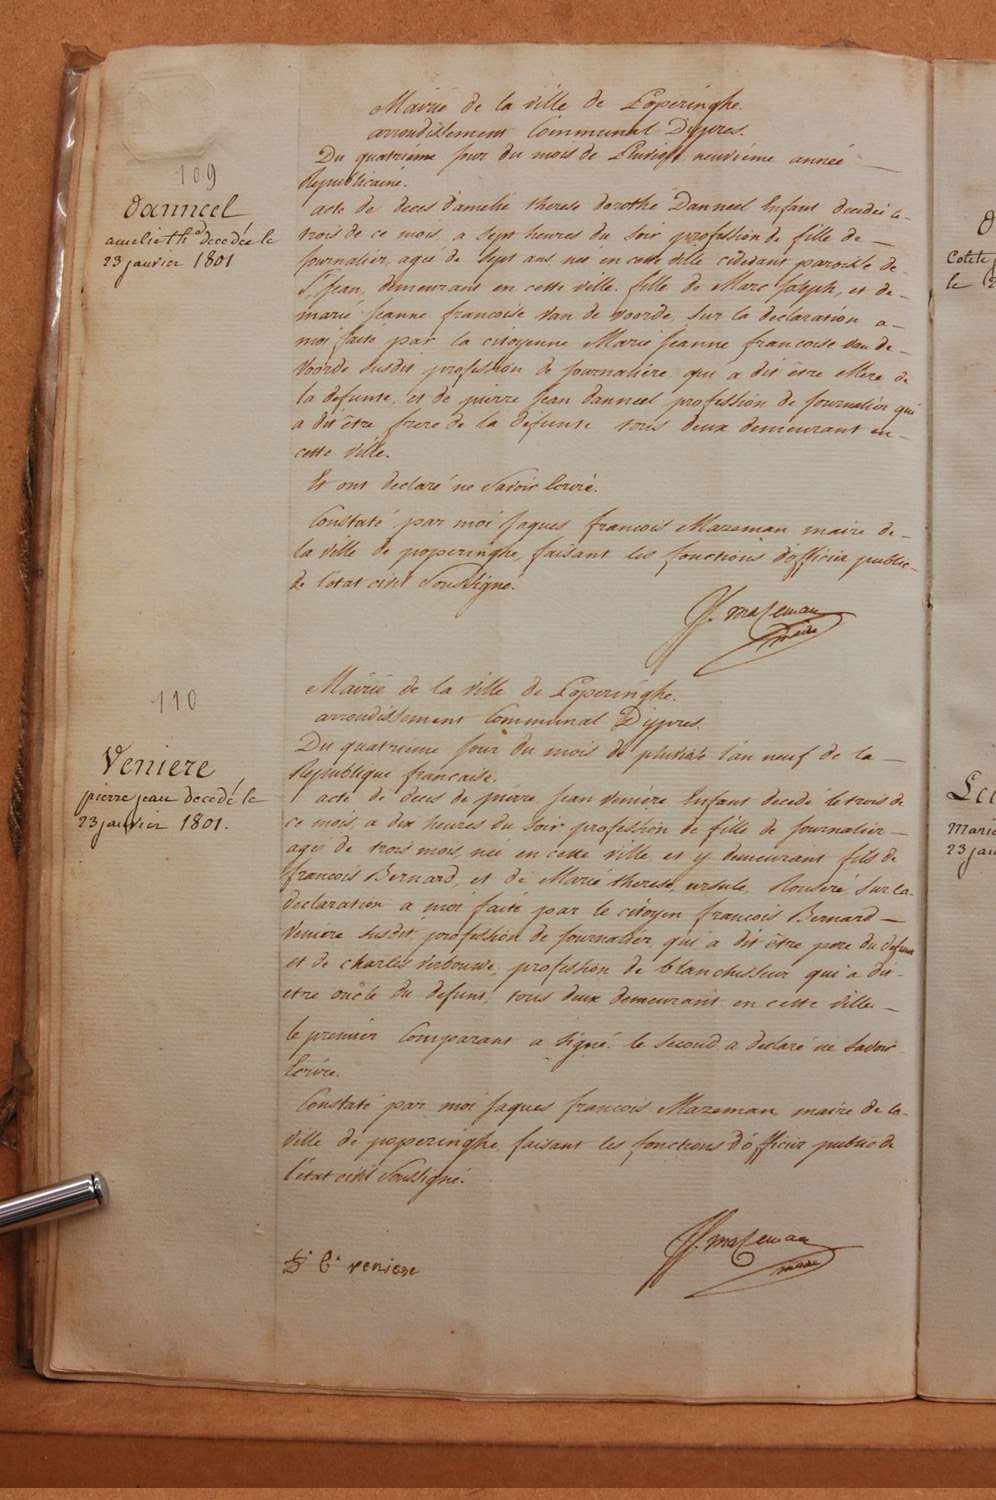 Mairie de la ville de Poperinghe.
arrondissement Communal Dypres.
Du quatrième jour du mois de Pluviose neuvième année
Republicaine.
109
Danneel
amelie th d decedée le
23 janvier 1801
acte de deces d'amelie therese dorothé Danneel Enfant decedeé le
trois de ce mois, a sept heures du soir profession de fille de
journalier, ageé de sept ans neé en cette ville cidevant paroisse de
St Jean, demeurant en cette ville, fille de Marc joseph, et de
marie Jeanne francoise van de voorde, sur la declaration a
moi faite par la citoyenne Marie Jeanne francoise van de
voorde susdit profession de journaliere, qui a dit être Mere de
la defunte, et de pierre Jean danneel profession de journalier qui
a dit être frere de la defunte tous deux demeurant en
cette ville.
Et ont declaré ne savoir Ecrire.
Constaté par moi Jaques francois Mazeman maire de
la ville de poperinghe, faisant les fonctions d'officier public
de l'etat civil Soussigné.
J. mazeman
maire
110
Mairie de la ville de Poperinghe.
arrondissement Communal D'ypres.
Du quatrieme jour du mois de pluviose l'an neuf de la
Republique francaise.
Veniere
pierre jean decedé le
23 janvier 1801.
acte de deces de pierre Jean veniere Enfant decedé le trois de
ce mois, a dix heures du soir profession de fille de journalier
agé de trois mois, neé en cette ville, et y demeurant fils de
francois Bernard, et de Marie therese, ursule, Rouseré sur la
declaration a moi faite par le citoyen francois Bernard
Veniere susdit profession de journalier, qui a dit être pere du defunt
et de charles verbouwe, profession de blanchisseur qui a dit
etre oncle du defunt, tous deux demeurant en cette ville
le premier Comparant a signé le second a declaré ne savoir
Ecrire.
Constaté par moi Jaques francois Mazeman maire de la
ville de poperinghe, faisant les fonctions d'officier public de
l'état civil Soussigné.
J. mazeman
maire
veniere